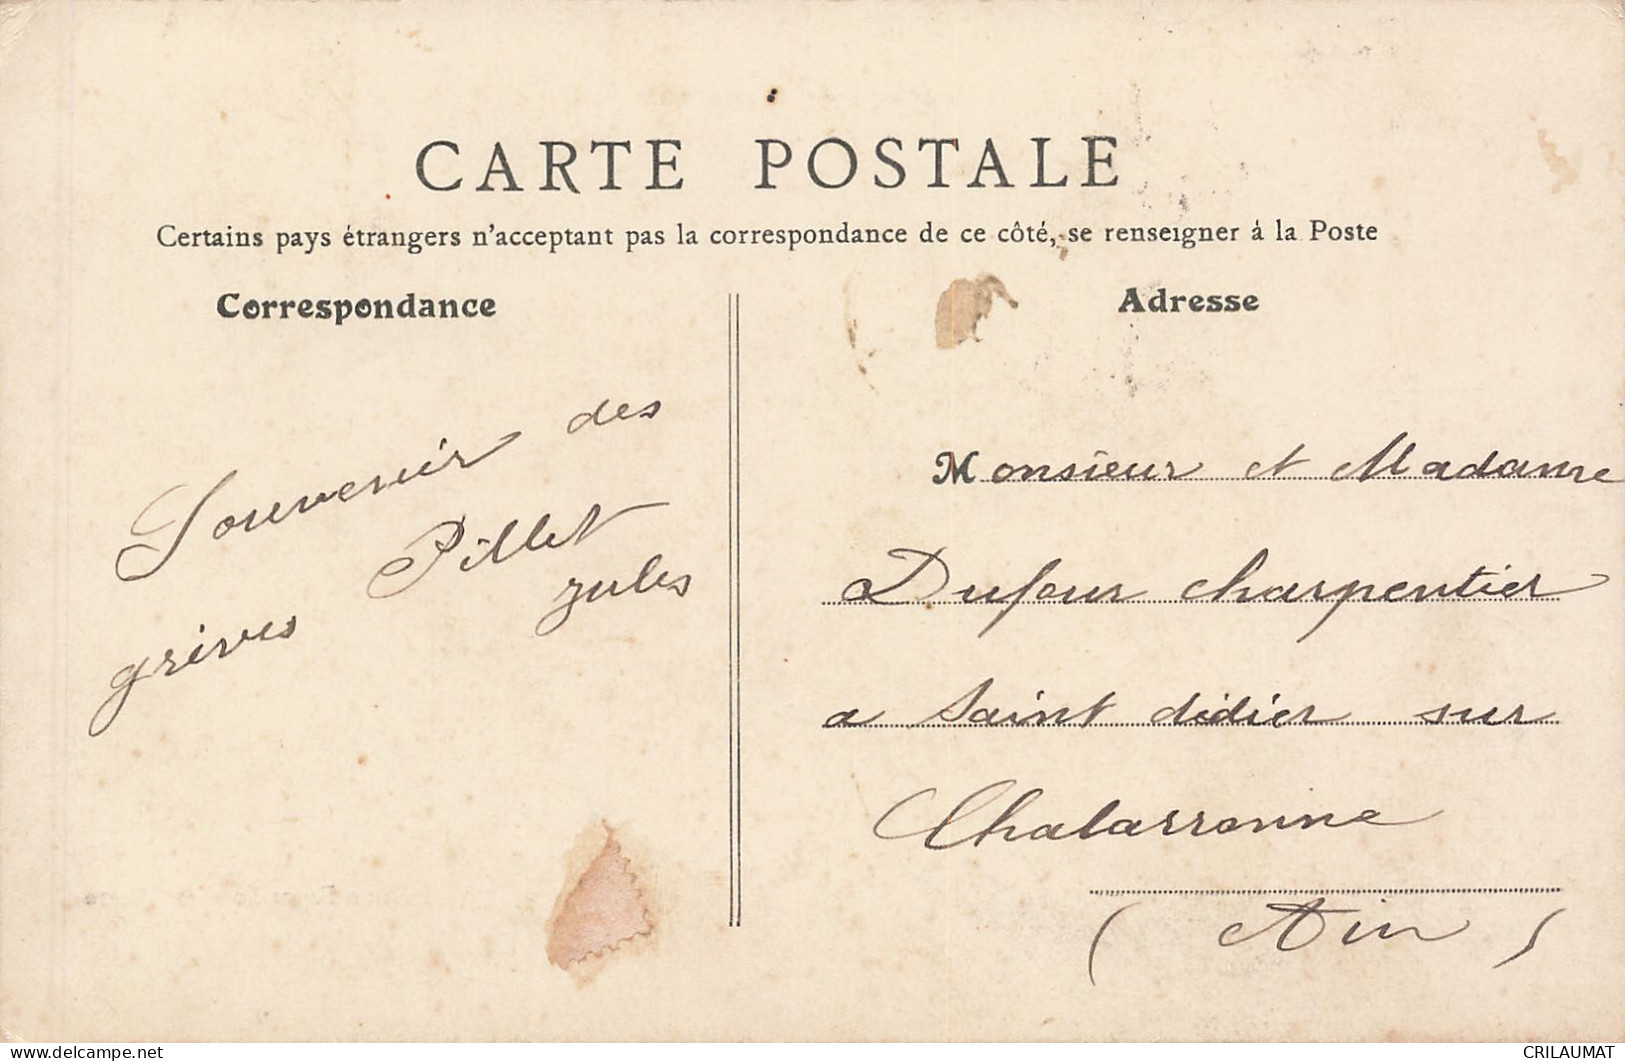 CARTE POSTALE
Certains pays étrangers n'acceptant pas la correspondance de ce côté, se renseigner à la Poste
Correspondance
Souvenir des
grèves Pillet
zules
Adresse
Monsieur et Madame
Dufour charpentier
a Saint didier sur
Chalaronne
(Ain)
CRILAUMAT